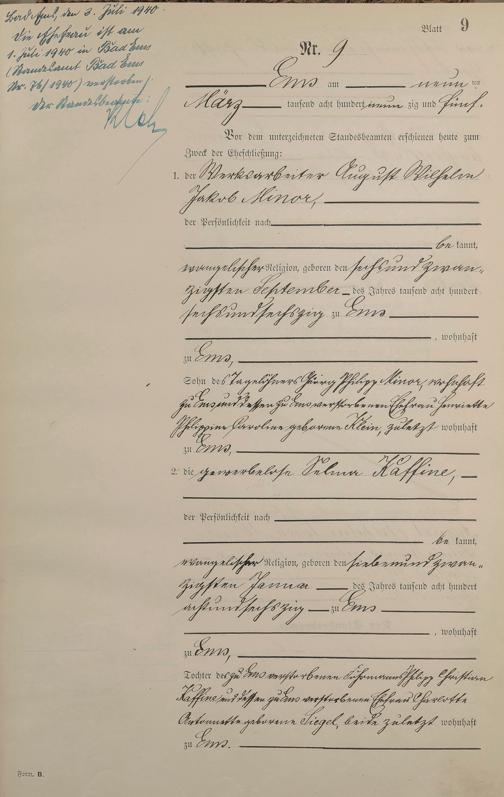 Bad Ems, den 3. Juli 1940
Die Ehefrau ist am
1. Juli 1940 in Bad Ems
(Standesamt Bad Ems
Nr. 76/1940) verstorben.
der Standesbeamte:
Blatt 9
Nr. 9
Ems am neun ten
März tausend acht hundert neun zig und fünf.
Vor dem unterzeichneten Standesbeamten erschienen heute zum
Zweck der Eheschließung:
1. der Werksarbeiter August Wilhelm
Jakob Minor,
der Persönlichkeit nach
be kannt,
evangelischer Religion, geboren den sechsundzwan-
zigsten September des Jahres tausend acht hundert
sechsundsechszig zu Ems
, wohnhaft
zu Ems,
Sohn des Tagelöhners Georg Philipp Minor, wohnhaft
zu Ems und dessen zu Ems verstorbenen Ehefrau Henriette
Philippine Karoline geborene Klein, zuletzt wohnhaft
zu Ems,
2. die gewerbelose Selma Kaffine,
der Persönlichkeit nach
be kannt,
evangelischer Religion, geboren den siebenundzwan-
zigsten Januar des Jahres tausend acht hundert
achtundsechszig zu Ems
, wohnhaft
zu Ems,
Tochter des zu Ems verstorbenen Philipp Christian
Kaffine und dessen zu Ems verstorbenen Ehefrau Charlotte
Antonnette geborene Siegel, beide zuletzt wohnhaft
zu Ems.
Form. B.